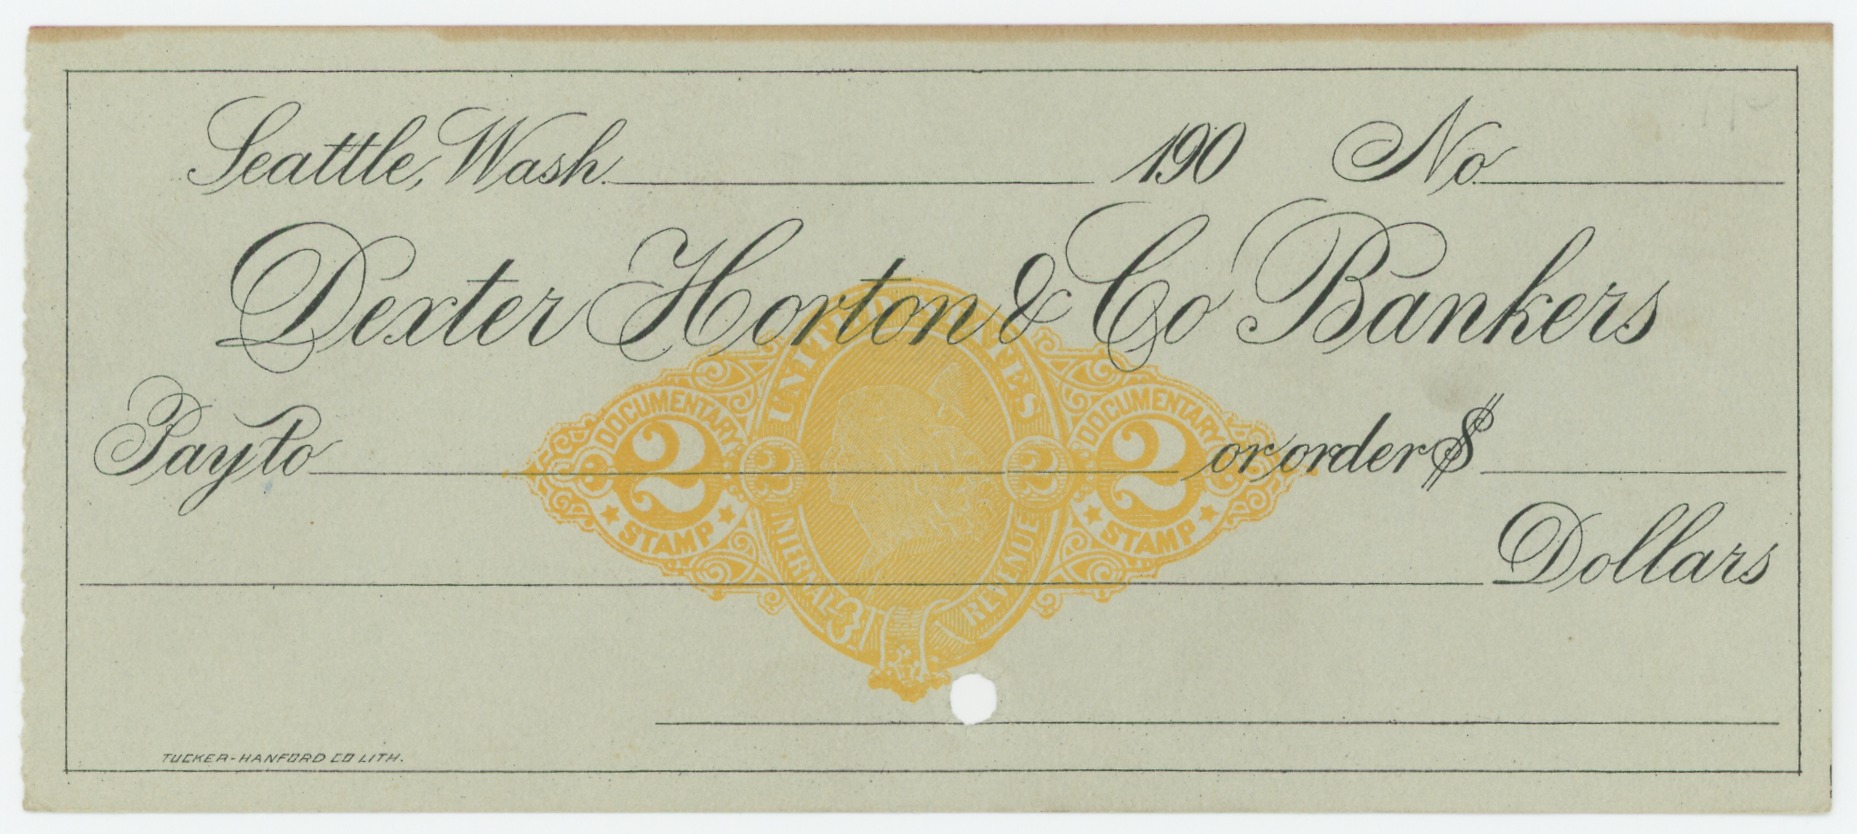 Seattle, Wash. 190 No
Dexter Horton & Co Bankers
Pay to or order $
Dollars
UNITED STATES
DOCUMENTARY 2 STAMP
2 2
DOCUMENTARY 2 STAMP
INTERNAL REVENUE
TUCKER-HANFORD CO LITH.